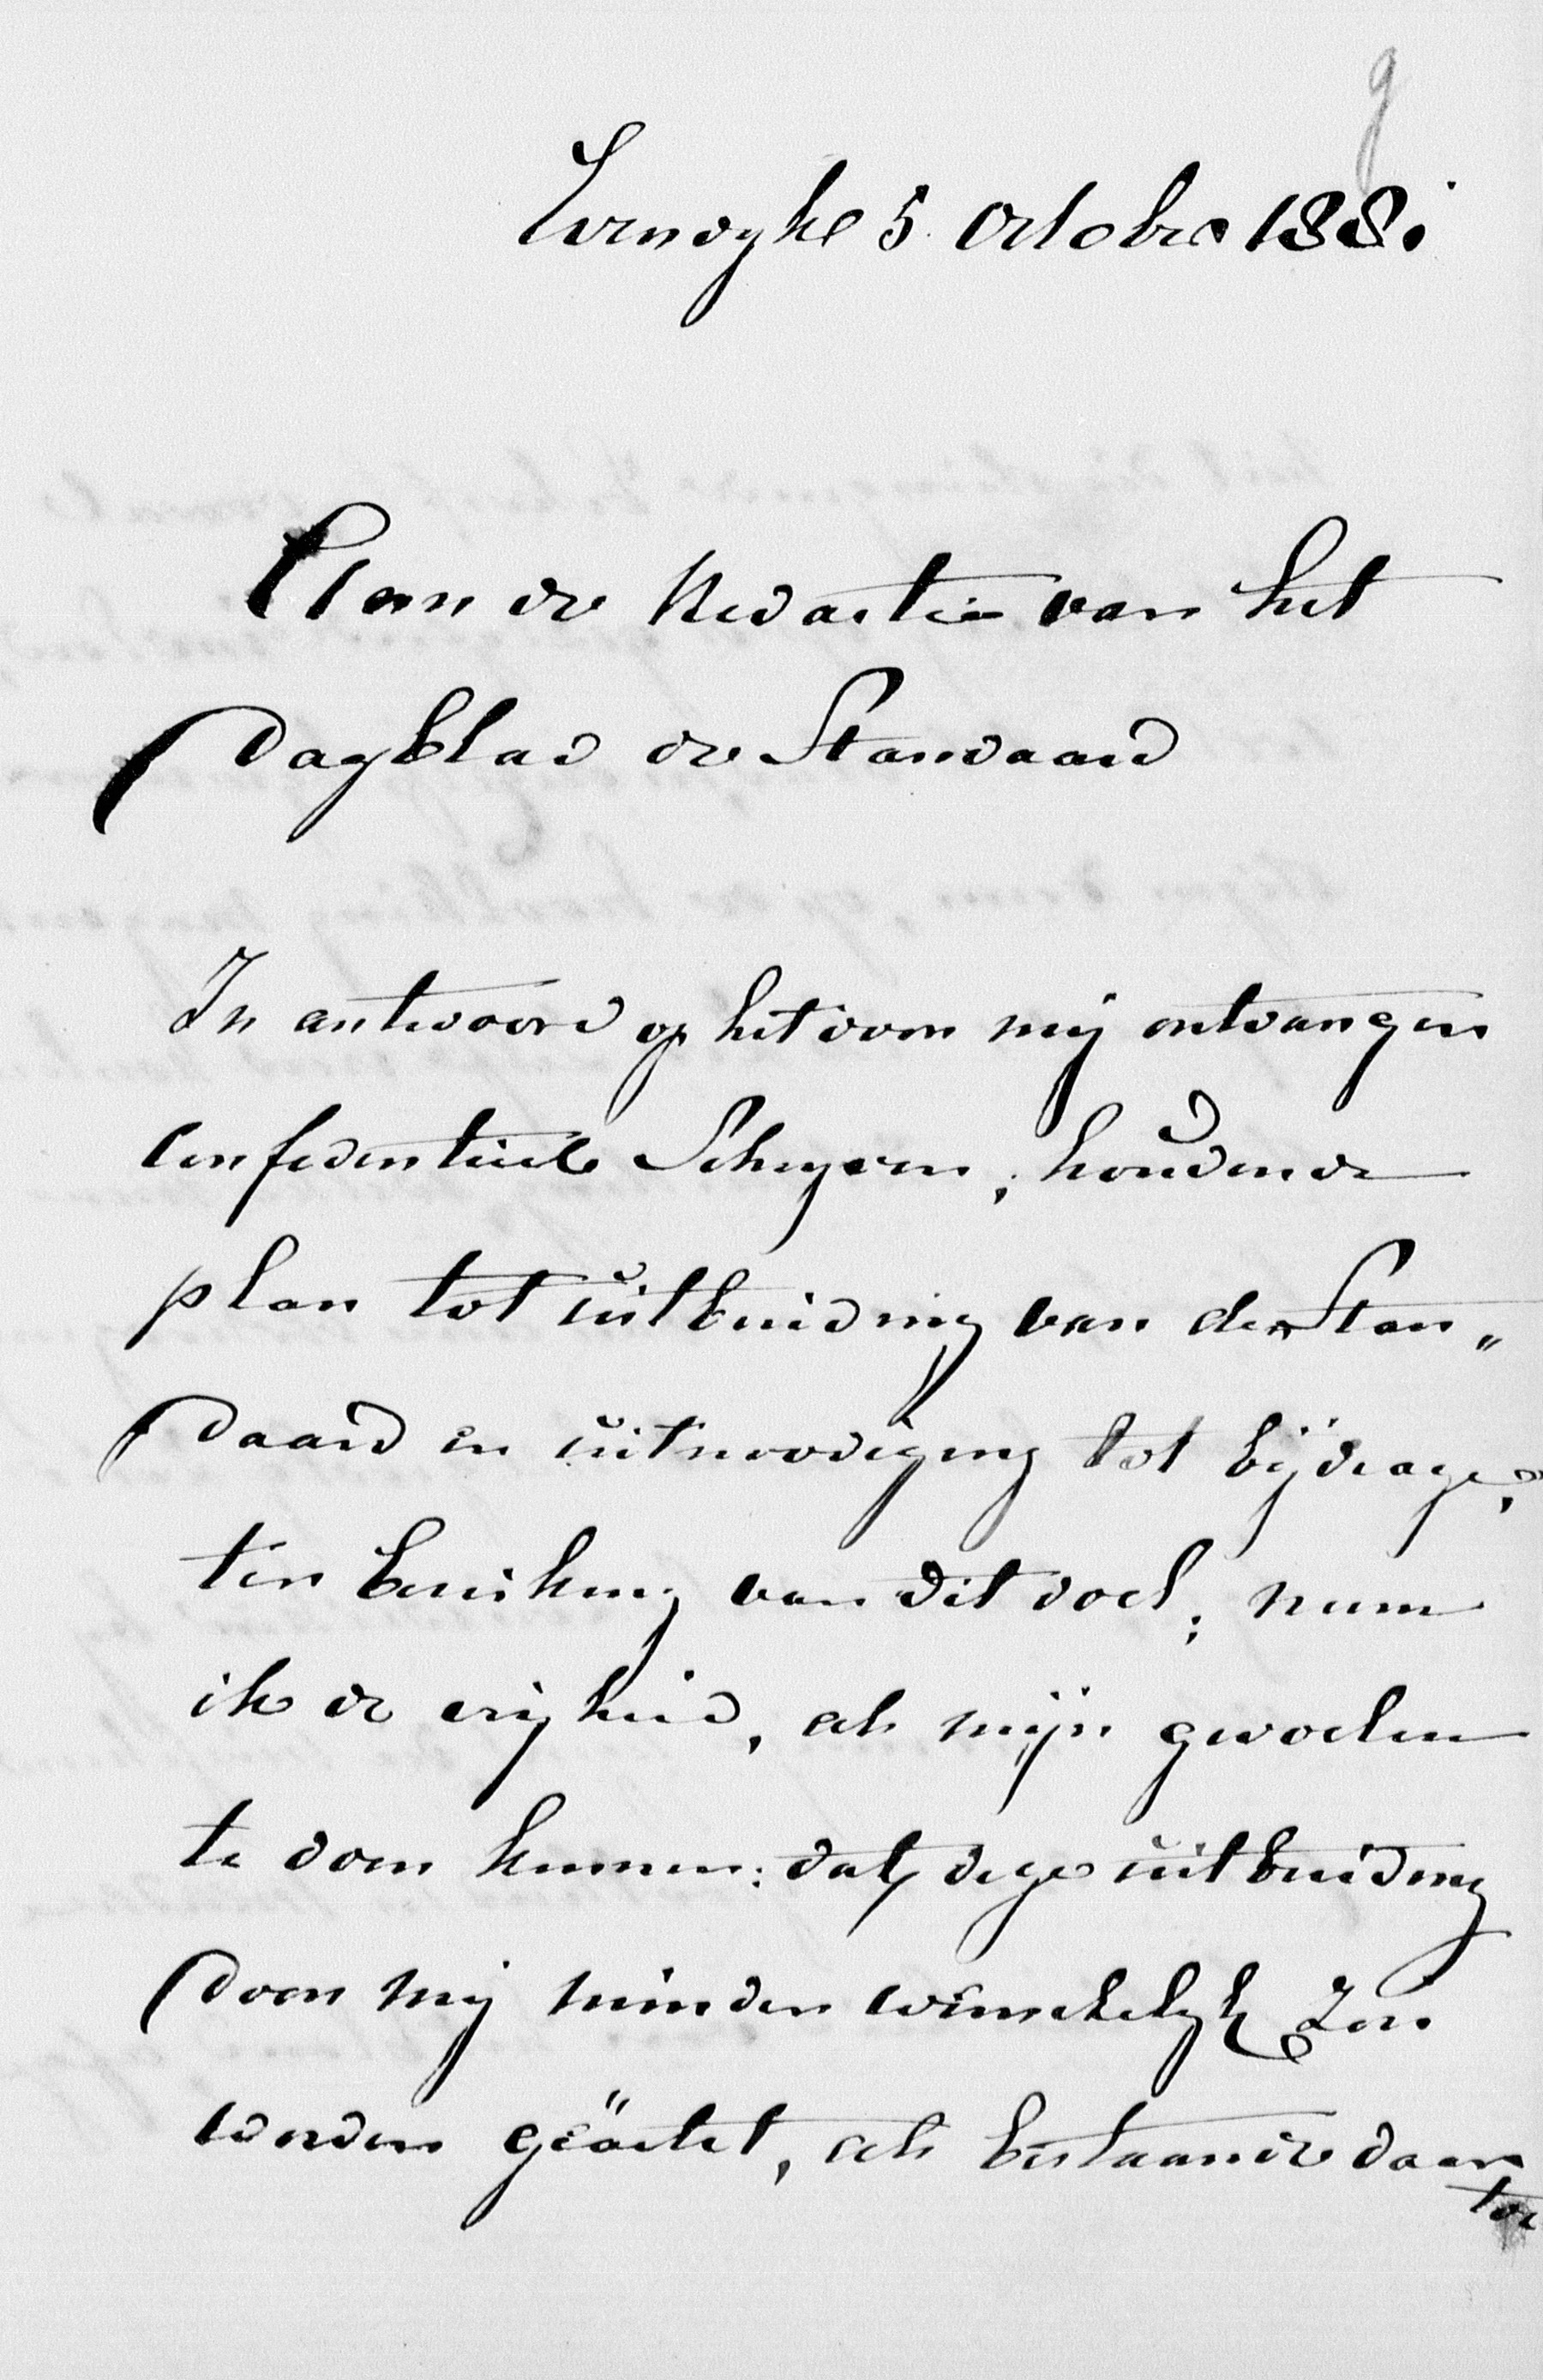 9
Ewijk 5 October 1881
Aan de Redactie van het
Dagblad de Standaard
In antwoord op het door mij ontvangen
Confidentieele Schryven, houdende
plan tot uitbreiding van de Stan„
daard en uitnoodiging tot bijdrage,
ter bereiking van dit doel; neem
ik de vrijheid, als mijn gevoelen
te doen kennen: dat, deze uitbreiding
door mij minder wenschelyk zou
worden geächtet, als bestaande daar
toe